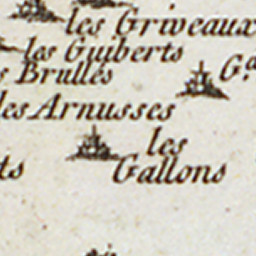 les Griveaux
les Guiberts
Brullés
les Arnusses
les
Gallons